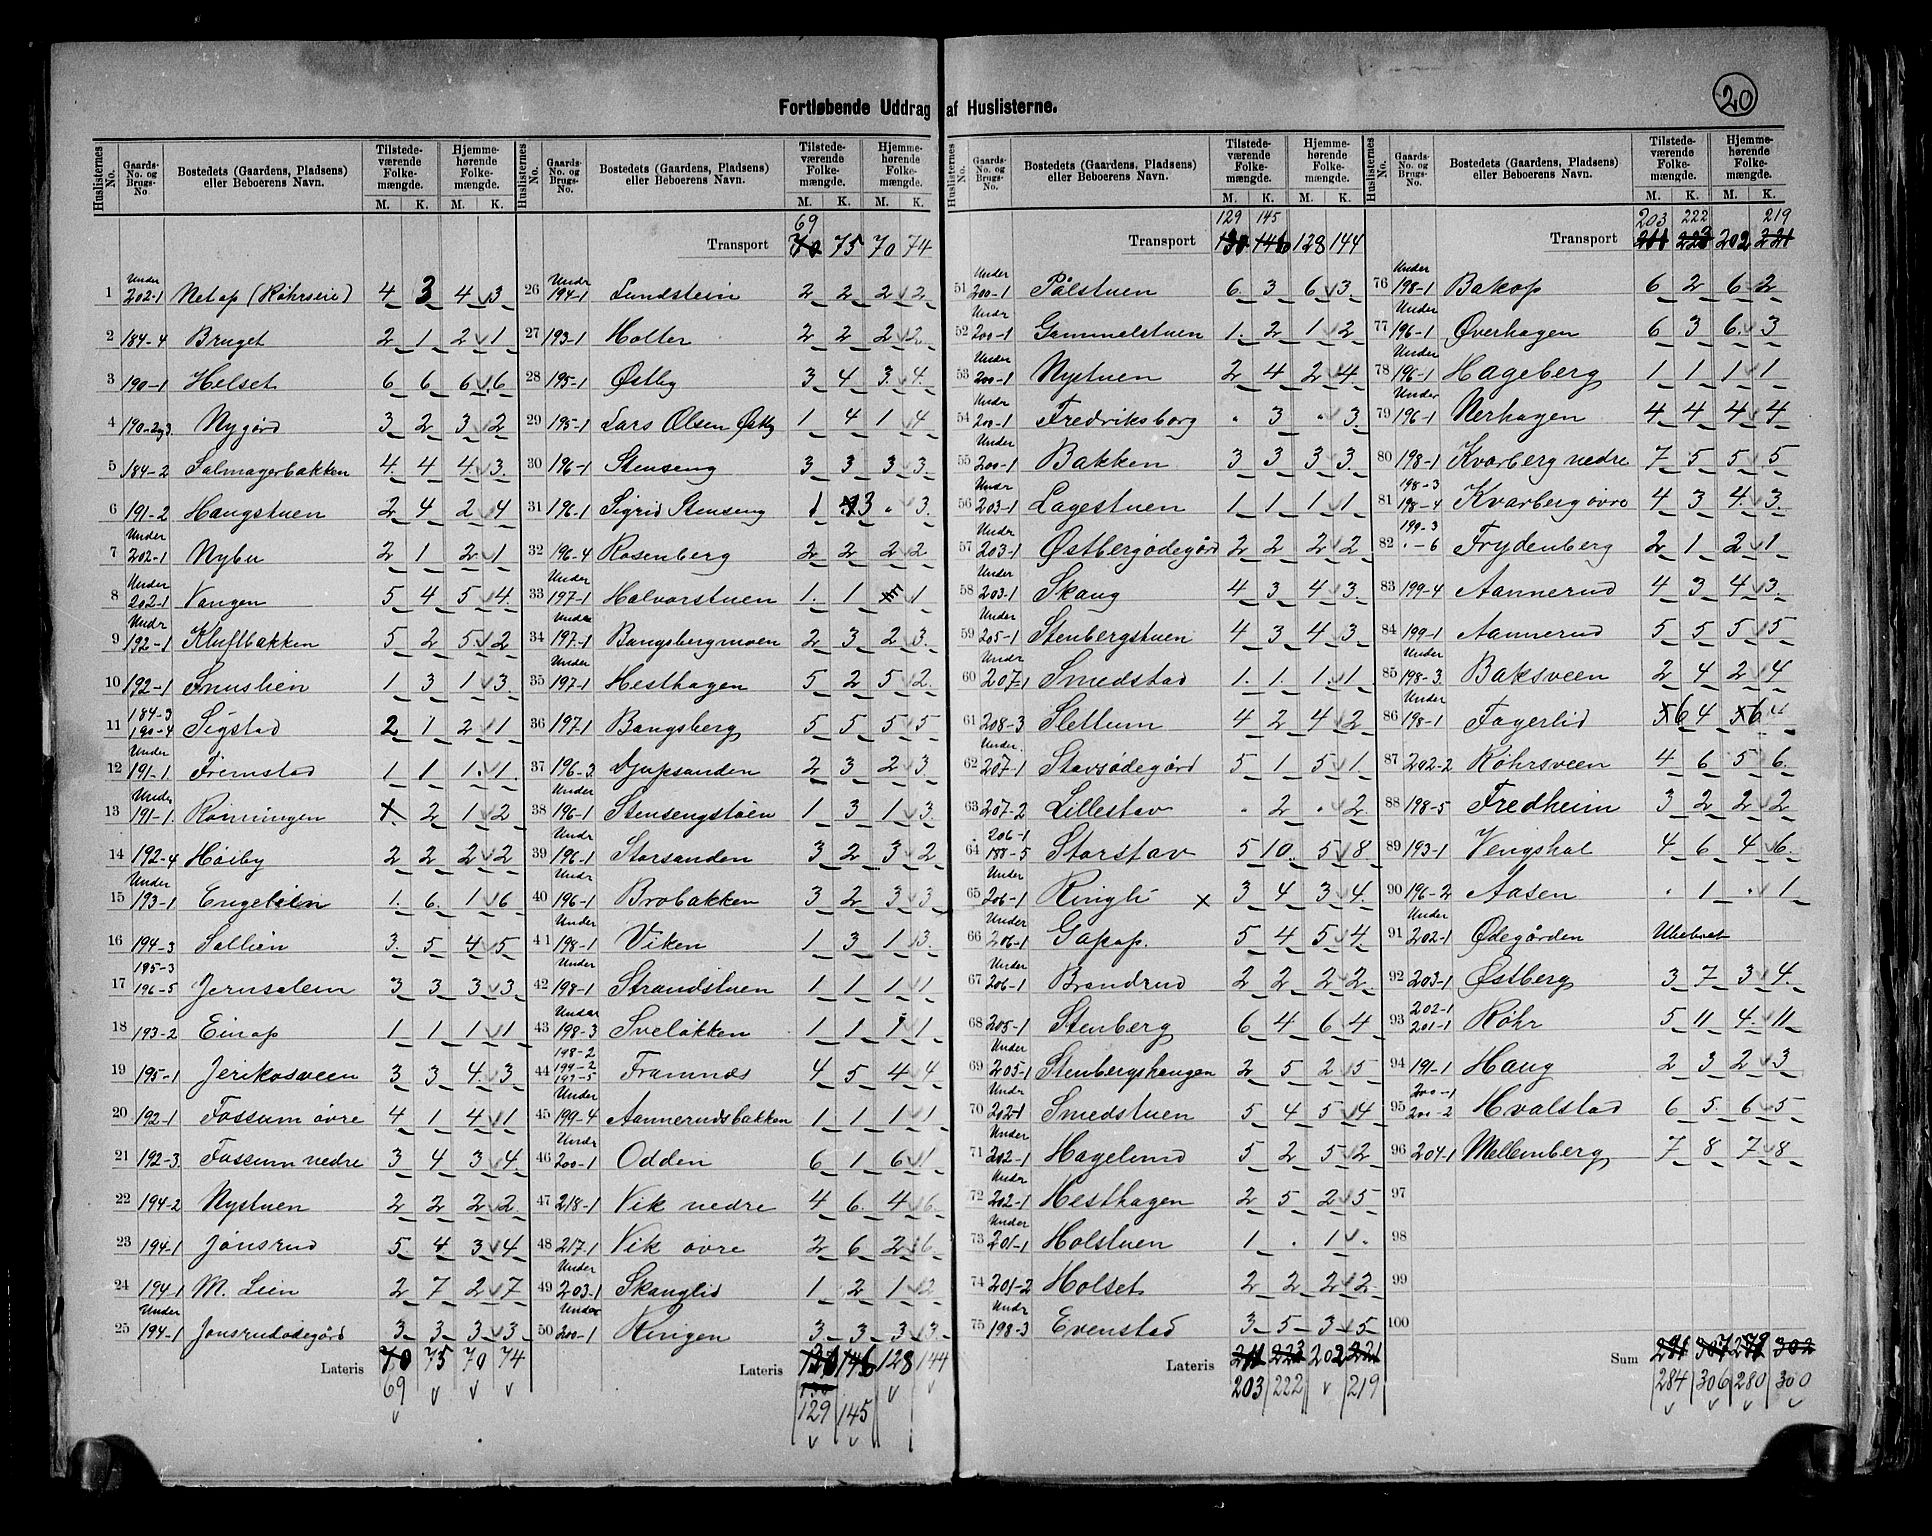 Fortløbende Uddrag af Huslisterne.
20
Huslisternes No. | Gaards-No. og Brugs-No. | Bostedets (Gaardens, Pladsens) eller Beboerens Navn. | Tilstedeværende Folkemængde. M. K. | Hjemmehørende Folkemængde. M. K.
1 Under 202-1 Netop (Röhrseie) 4 3 4 3
2 184-4 Bruget 2 1 2 1
3 190-1 Helset 6 6 6 6
4 190-2,3 Nygård 3 2 3 2
5 184-2 Salmagerbakken 4 4 4 3
6 191-2 Haugstuen 2 4 2 4
7 Under 202-1 Nybu 2 1 2 1
8 Under 202-1 Vangen 5 4 5 4
9 Undr 192-1 Kluftbakken 5 2 5 2
10 192-1 Snuslien 1 3 1 3
11 184-3 190-4 Sigstad 2 1 2 1
12 Under 191-1 Fremstad 1 1 1 1
13 Under 191-1 Rønningen 2 1 2
14 192-4 Høiby 2 2 2 2
15 Under 193-1 Engelien 1 6 1 6
16 194-3 Sollien 3 5 4 5
17 195-3 196-5 Jerusalem 3 3 3 3
18 193-2 Einap 1 1 1 1
19 195-1 Jerikosveen 3 3 4 3
20 192-1 Fossum øvre 4 1 4 1
21 192-3 Fossum nedre 3 4 3 4
22 194-2 Nystuen 2 2 2 2
23 194-1 Jønsrud 5 4 3 4
24 194-1 M. Lien 2 7 2 7
25 Under 194-1 Jønsrudødegård 3 3 3 3
Lateris 70 75 70 74
69
Huslisternes No. | Gaards-No. og Brugs-No. | Bostedets (Gaardens, Pladsens) eller Beboerens Navn. | Tilstedeværende Folkemængde. M. K. | Hjemmehørende Folkemængde. M. K.
69
Transport 70 75 70 74
26 Undr 194-1 Lundstein 2 2 2 2
27 193-1 Holter 2 2 2 2
28 195-1 Østby 3 4 3 4
29 195-1 Lars Olsen Østby 1 4 1 4
30 196-1 Stenseng 3 3 3 3
31 196-1 Sigrid Stenseng 1 3 . 3
32 196-4 Rosenberg 2 2 2 2
33 Under 197-1 Halvorstuen 1 1 1
34 Under 197-1 Bangsbergmoen 2 3 2 3
35 Under 197-1 Hesthagen 5 2 5 2
36 197-1 Bangsberg 5 5 5 5
37 196-3 Djupsanden 2 3 2 3
38 Under 196-1 Stensengstøen 1 3 1 3
39 Undr 196-1 Storsanden 3 2 3 2
40 Undr 196-1 Brobakken 3 2 3 3
41 Under 198-1 Viken 1 3 1 3
42 Under 198-1 Strandstuen 1 1 1 1
43 Under 198-3 Sveløkken 1 1 1 1
44 198-2 199-2 197-5 Framnæs 4 5 4 4
45 Under 199-4 Aannerudsbakken 1 1 1 1
46 Undr 200-1 Odden 6 1 6 1
47 218-1 Vik nedre 4 6 4 6
48 217-1 Vik øvre 2 6 2 6
49 Under 203-1 Skauglid 1 2 1 2
50 Under 200-1 Ringen 3 3 3 3
Lateris 146 128 144
130
129 145
Huslisternes No. | Gaards-No. og Brugs-No. | Bostedets (Gaardens, Pladsens) eller Beboerens Navn. | Tilstedeværende Folkemængde. M. K. | Hjemmehørende Folkemængde. M. K.
129 145
Transport 130 146 128 144
51 Under 200-1 Pålstuen 6 3 6 3
52 Undr 200-1 Gammelstuen 1 2 1 2
53 Under 200-1 Nystuen 2 4 2 4
54 Undr 200-1 Fredriksborg . 3 . 3
55 Under 200-1 Bakken 3 3 3 3
56 Undr 203-1 Lagestuen 1 1 1 1
57 Under 203-1 Østbergødegård 2 2 2 2
58 Under 203-1 Skaug 4 3 4 3
59 Under 205-1 Stenbergstuen 4 3 4 3
60 Undr 207-1 Smedstad 1 1 1 1
61 208-3 Slettum 4 2 4 2
62 Under 207-1 Stavsødegård 5 1 5 1
63 207-2 Lillestav . 2 . 2
64 206-1 188-5 Storstav 5 10 5 8
65 Under 206-1 Ringli x 3 4 3 4
66 Under 206-1 Gapop. 5 4 5 4
67 Under 206-1 Brandrud 2 2 2 2
68 205-1 Stenberg 6 4 6 4
69 Under 205-1 Stenbergshaugen 2 5 2 5
70 Undr 202-1 Smedstuen 5 4 5 4
71 Under 202-1 Hagelund 5 2 5 2
72 Under 202-1 Hesthagen 2 5 2 5
73 Under 201-1 Holstuen 1 . 1 .
74 201-2 Holset 2 2 2 2
75 Undr 198-3 Evenstad 3 5 3 5
Lateris 211 223 202 221
203 222 219
Huslisternes No. | Gaards-No. og Brugs-No. | Bostedets (Gaardens, Pladsens) eller Beboerens Navn. | Tilstedeværende Folkemængde. M. K. | Hjemmehørende Folkemængde. M. K.
203 222 219
Transport 223 202 221
76 Under 198-1 Bakop 6 2 6 2
77 Under 196-1 Øverhagen 6 3 6 3
78 Under 196-1 Hageberg 1 1 1 1
79 Under 196-1 Nerhagen 4 4 4 4
80 198-1 Kvarberg nedre 7 5 5 5
81 198-3 198-4 Kvarberg øvre 4 3 4 3
82 199-3 "-6 Frydenberg 2 1 2 1
83 199-4 Aannerud 4 3 4 3
84 199-1 Aannerud 5 5 5 5
85 Under 198-3 Baksveen 2 4 2 4
86 Under 198-1 Fagerlid 6 4 6 4
87 202-2 Röhrsveen 4 6 5 6
88 198-5 Fredheim 3 2 2 2
89 193-1 Vengshol 4 6 4 6
90 196-2 Aasen . 1 . 1
91 Under 202-1 Ødegården Ubeboet
92 203-1 Østberg 3 7 3 4
93 202-1 201-1 Röhr 5 11 4 11
94 191-1 Haug 2 3 2 3
95 200-1 200-2 Hvalstad 6 5 6 5
96 204-1 Mellemberg 7 8 7 8
97
98
99
100
Sum 291 307 279 302
284 306 280 300